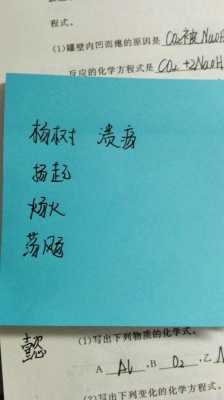 程式。
(1)罐壁内凹而瘪的原因是 CO₂被NaOH
反应的化学方程式是 CO₂+2NaOH
杨树 溃疡
扬起
炀火
荡飏
(1)写出下列物质的化学式。
A Al ,B O₂ ,乙
(2)写出下列变化的化学方程式。